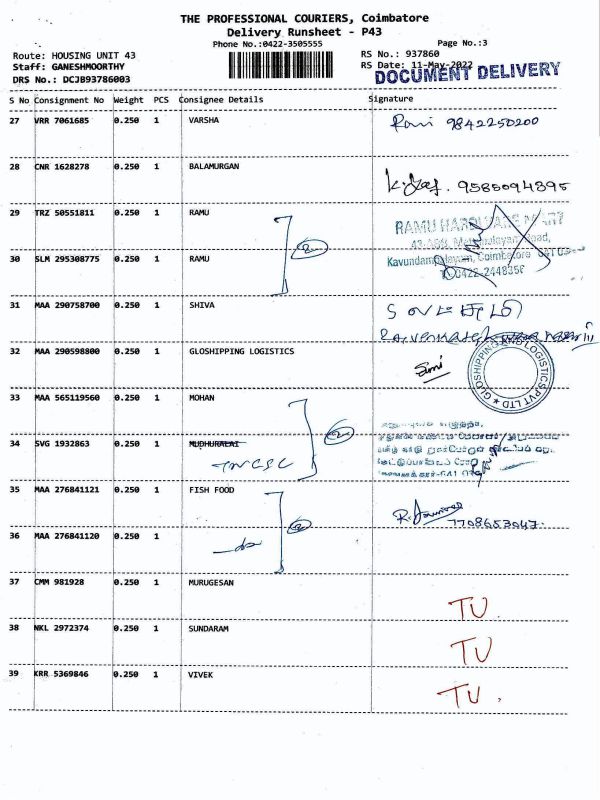 THE PROFESSIONAL COURIERS, Coimbatore
Delivery Runsheet - P43
Phone No.:0422-3505555
Page No.:3
Route: HOUSING UNIT 43
RS No.: 937860
Staff: GANESHMOORTHY
RS Date: 11-May-2022
DRS No.: DCJB93786003
DOCUMENT DELIVERY
S No Consignment No Weight PCS Consignee Details Signature
27 VRR 7061685 0.250 1 VARSHA 9842250200
28 CNR 1628278 0.250 1 BALAMURGAN 9585094895
29 TRZ 50551811 0.250 1 RAMU
RAMU HARDWARE MART
30 SLM 295308775 0.250 1 RAMU
2
Coimbatore
31 MAA 290758700 0.250 1 SHIVA
32 MAA 290598800 0.250 1 GLOSHIPPING LOGISTICS
GLOSHIPPING AND LOGISTICS PVT LTD
33 MAA 565119560 0.250 1 MOHAN
2
34 SVG 1932863 0.250 1 MUDHURALAI
TNCSC
35 MAA 276841121 0.250 1 FISH FOOD
2
7708653047
36 MAA 276841120 0.250 1
do
37 CMM 981928 0.250 1 MURUGESAN TU
38 NKL 2972374 0.250 1 SUNDARAM TU
39 KRR 5369846 0.250 1 VIVEK TU.